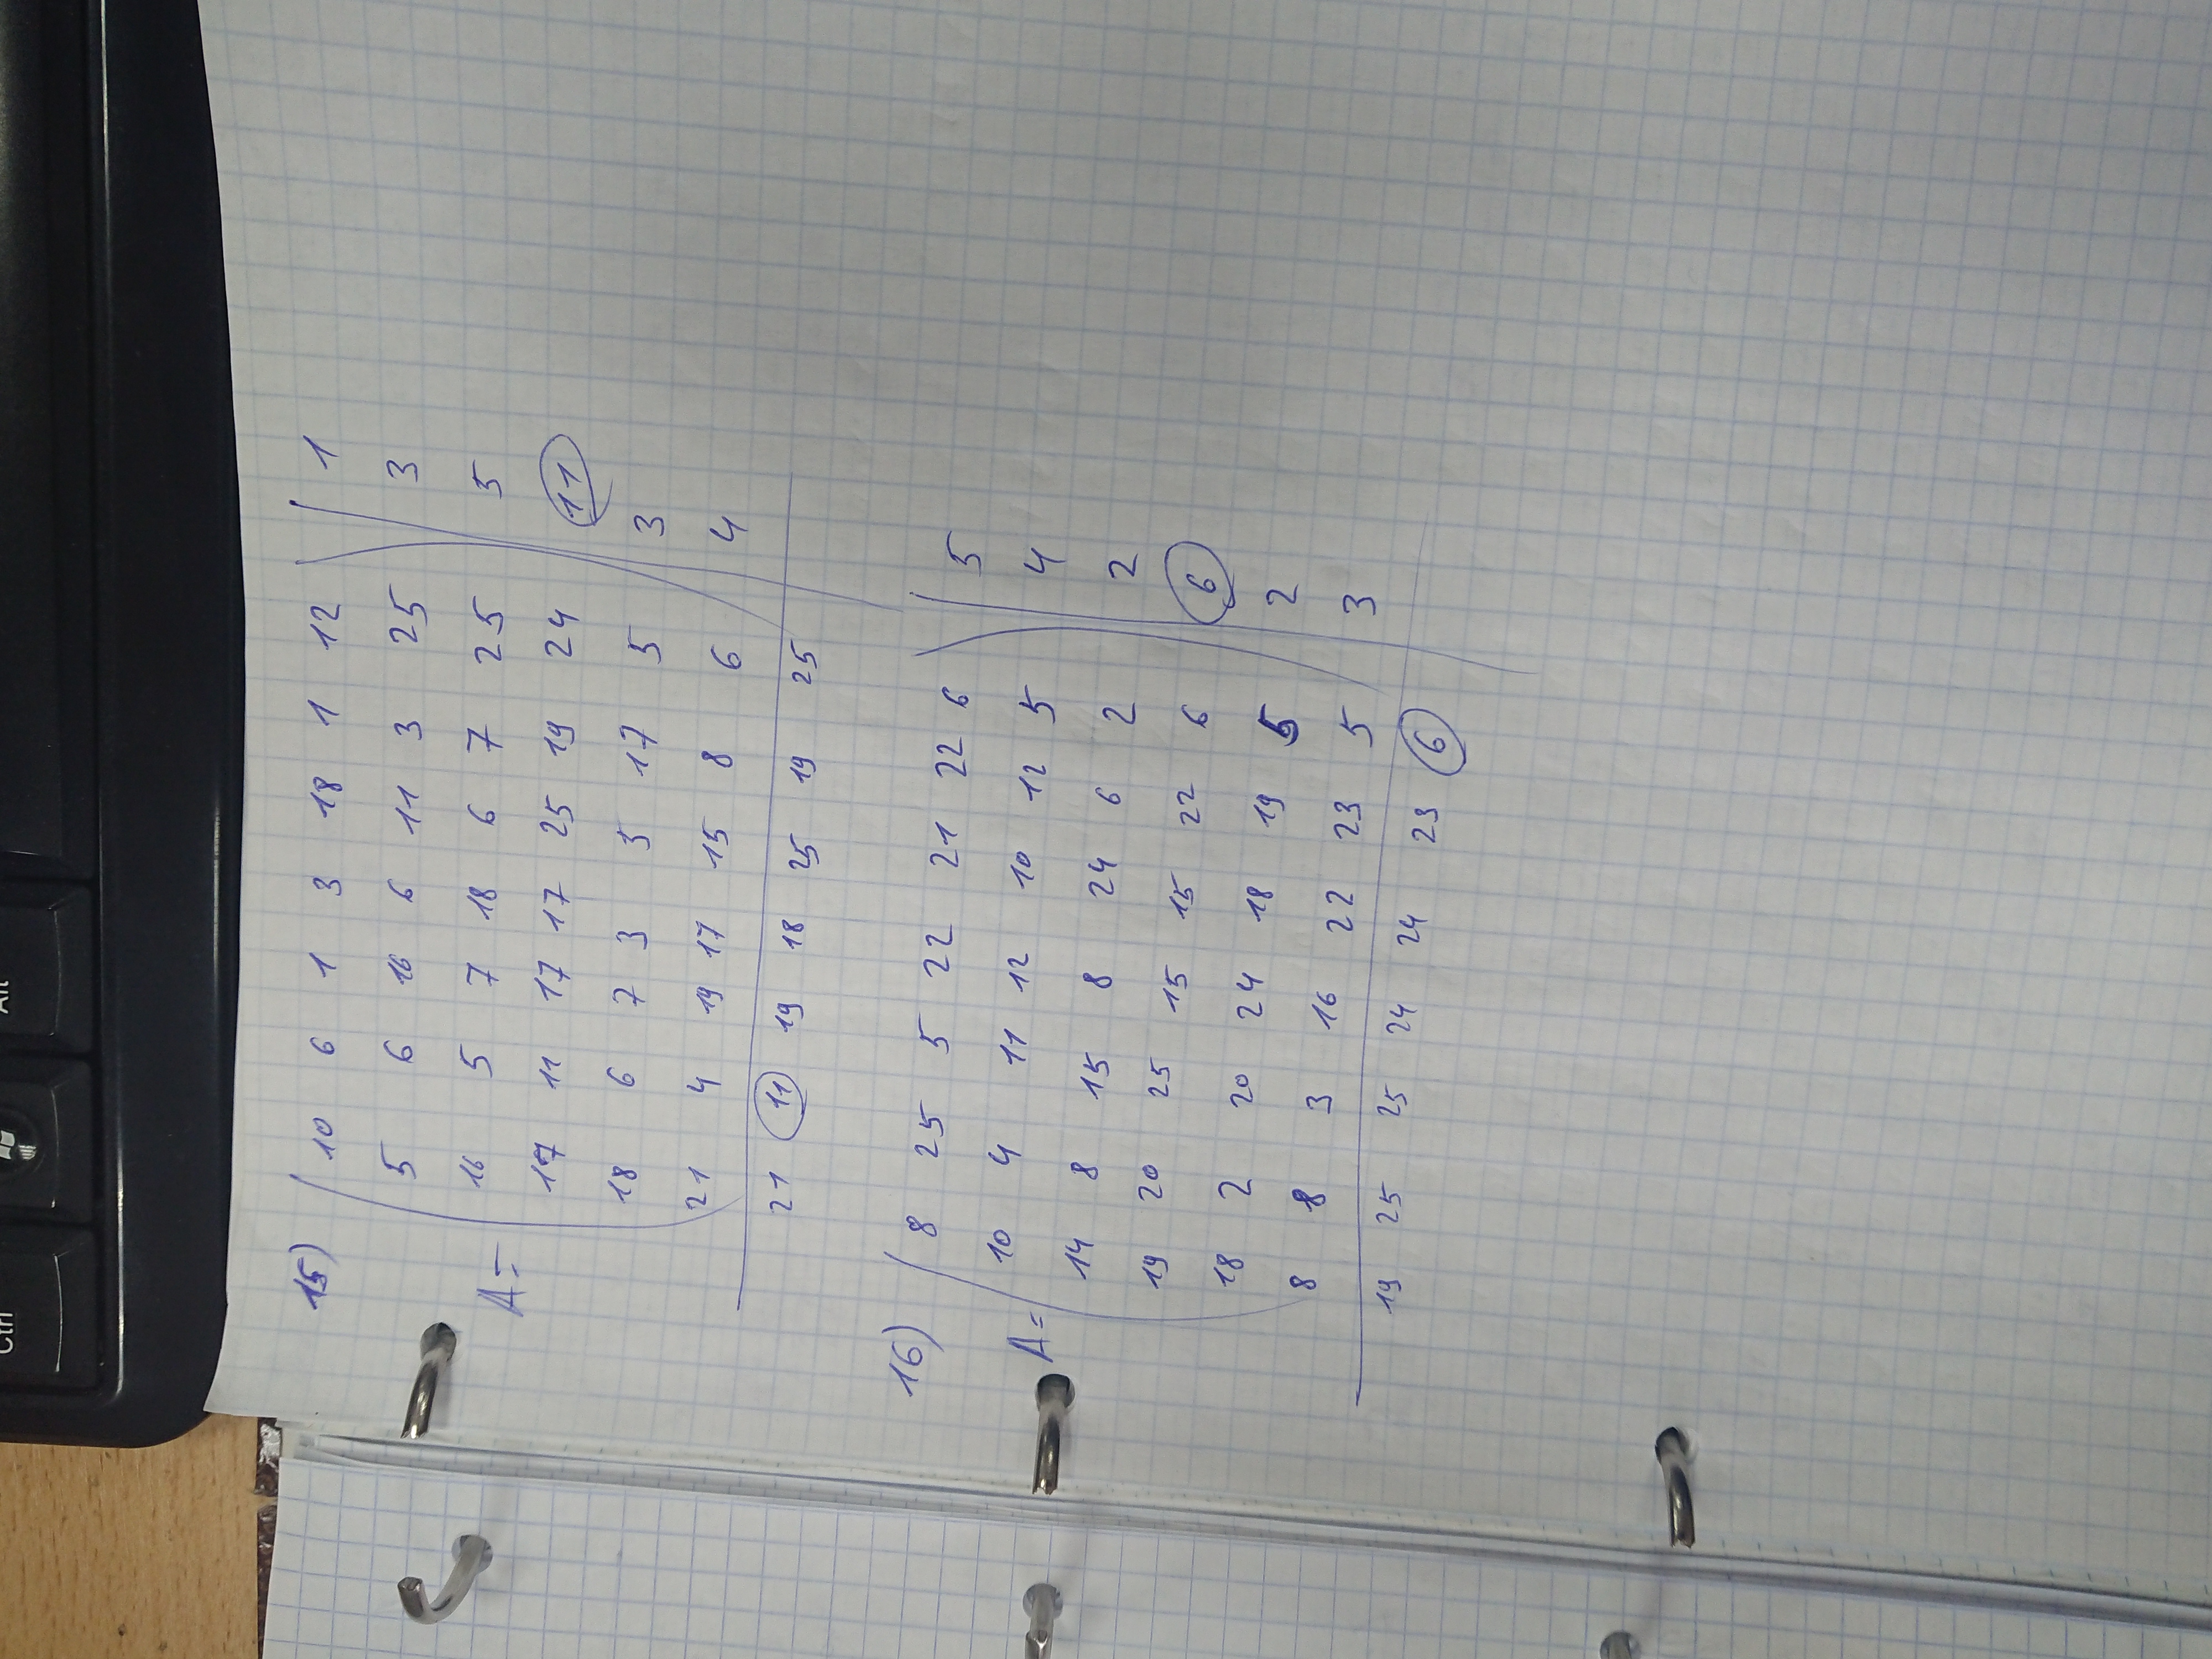 Ctrl Alt
15) 10 6 1 3 18 1 12 1
5 6 16 6 11 3 25 3
A= 16 5 7 18 6 7 25 5
17 11 17 17 25 19 24 11
18 6 7 3 5 17 5 3
21 4 19 17 15 8 6 4
21 11 19 18 25 19 25
16) 8 25 5 22 21 22 6 5
A= 10 4 11 12 10 12 5 4
14 8 15 8 24 6 2 2
19 20 25 15 15 22 6 6
18 2 20 24 18 19 5 2
8 8 3 16 22 23 5 3
19 25 25 24 24 23 6